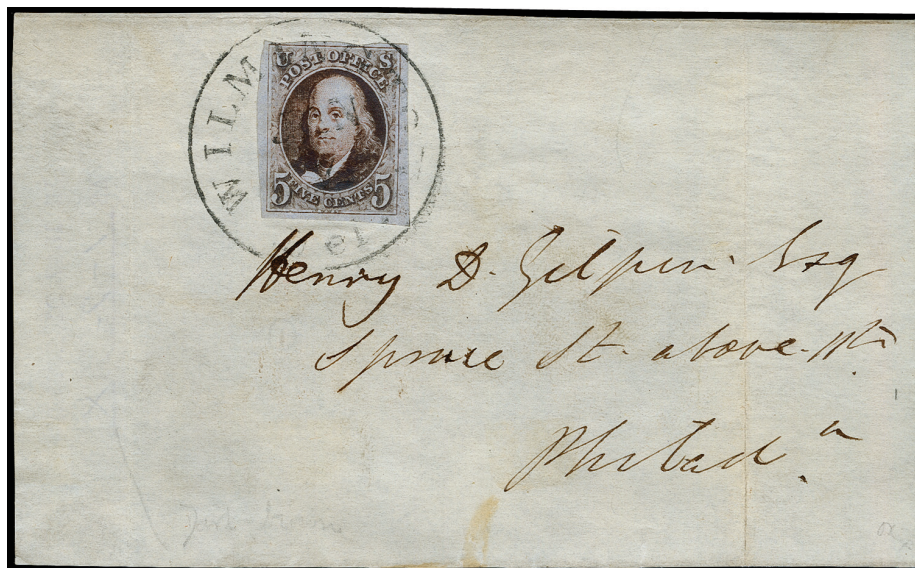 WILMINGTO
U S
POST OFFICE
5 FIVE CENTS 5
Henry D. Gilpin. Esq
Spruce St. above. 11th
Philad.a
Dark brown